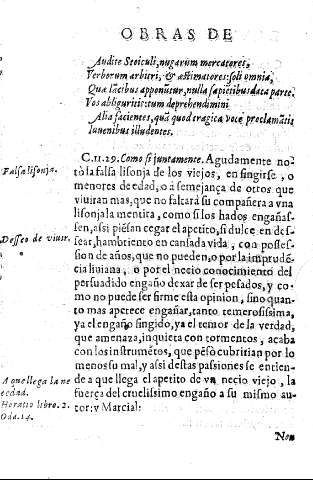 OBRAS DE
Audite Stoiculi, nugarum mercatores,
Verborum arbitri, & æstimatores: soli omnia,
Quæ lācibus apponūtur, nulla sapiētibus data parte,
Vos abliguritis: tum deprehendimini
Alia facientes, quā quod tragica voce proclamātis
Iuuenibus illudentes.
C. 11. 29. Como si juntamente. Agudamente no-
Falsa lisonja.
tò la falsa lisonja de los viejos, en fingirse, o
menores de edad, o à semejança de otros que
viuiran mas, que no faltarà su compañera a vna
lisonja la mentira, como si los hados engañas-
sen, assi piēsan cegar el apetito, si dulce en des-
Desseo de viuir.
sear, hambriento en cansada vida, con posses-
sion de años, que no pueden, o por la imprudē-
cia liuiana, o por el necio conocimiento del
persuadido engaño dexar de ser pesados, y co-
mo no puede ser firme esta opinion, sino quan-
to mas apetece engañar, tanto temerosissima,
ya el engaño fingido, ya el temor de la verdad,
que amenaza, inquieta con tormentos, acaba
con los instrumētos, que pēsò cubririan por lo
menos su mal, y assi destas passiones se entien-
A que llega la ne
de a que llega el apetito de vn necio viejo, la
edad.
fuerça del cruelissimo engaño a su mismo au-
Horatio libro. 2.
tor: v Marcial:
Oda. 14.
Non